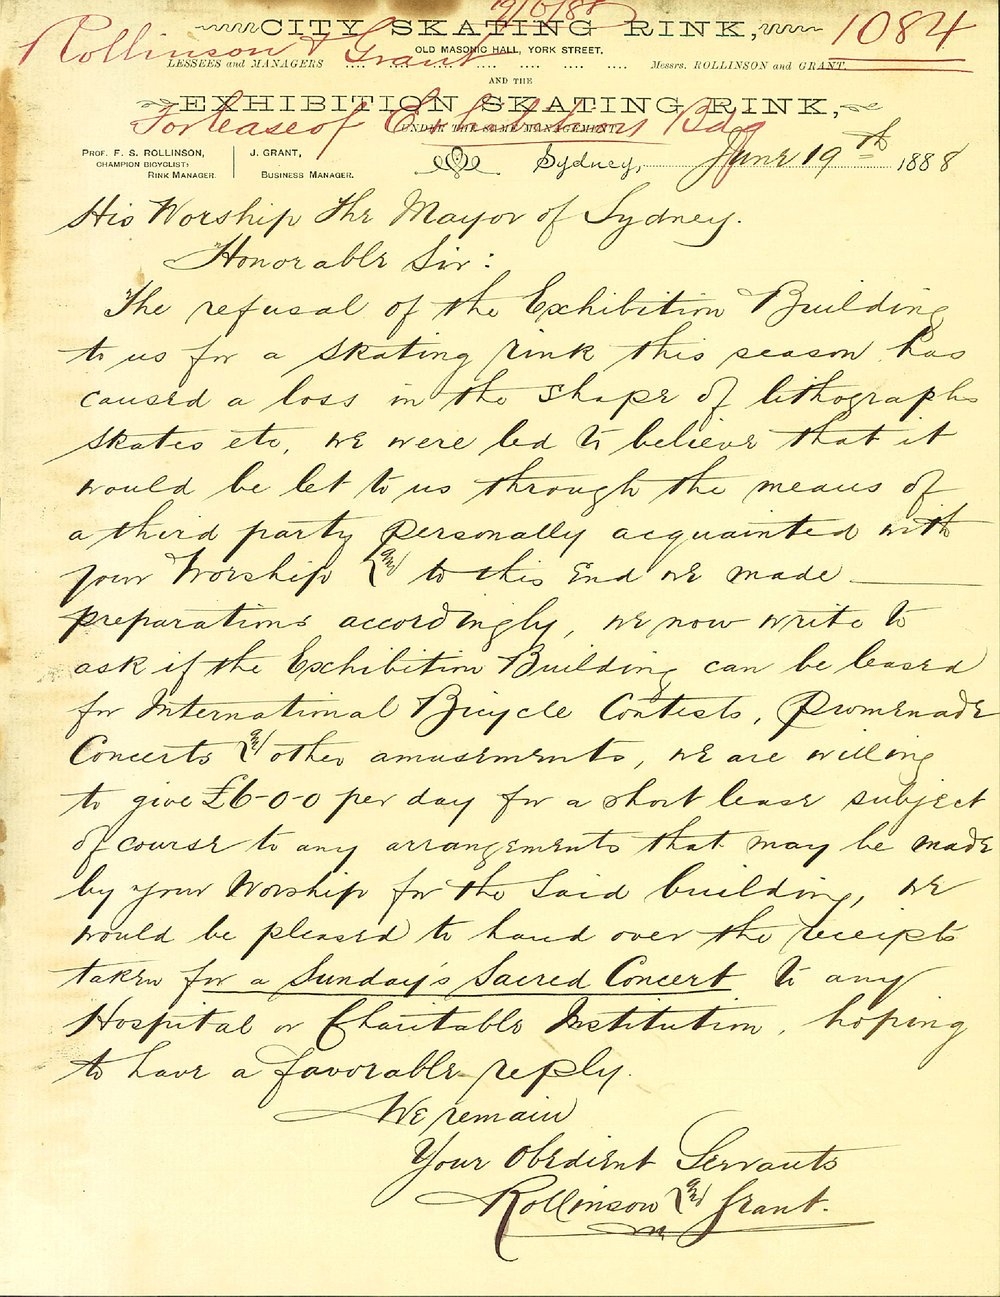 19/6/88
CITY SKATING RINK,
1084
Rollinson & Grant
OLD MASONIC HALL, YORK STREET.
LESSEES and MANAGERS .... .... .... .... .... .... .... Messrs. ROLLINSON and GRANT.
AND THE
EXHIBITION SKATING RINK,
For lease of Exhibition Bdg
UNDER THE SAME MANAGEMENT.
PROF. F. S. ROLLINSON,
CHAMPION BICYCLIST;
RINK MANAGER.
J. GRANT,
BUSINESS MANAGER.
Sydney, June 19th 1888
His Worship The Mayor of Sydney.
Honorable Sir:
The refusal of the Exhibition Building
to us for a skating rink this season has
caused a loss in the shape of lithographs
skates etc, we were led to believe that it
would be let to us through the means of
a third party personally acquainted with
your Worship and to this end we made
preparations accordingly, we now write to
ask if the Exhibition Building can be leased
for International Bicycle Contests, Promenade
Concerts and other amusements, we are willing
to give £6-0-0 per day for a short lease subject
of course to any arrangements that may be made
by your Worship for the said building, we
would be pleased to hand over the receipts
taken for a Sunday's Sacred Concert to any
Hospital or Charitable Institution, hoping
to have a favorable reply.
We remain
Your Obedient Servants
Rollinson and Grant.